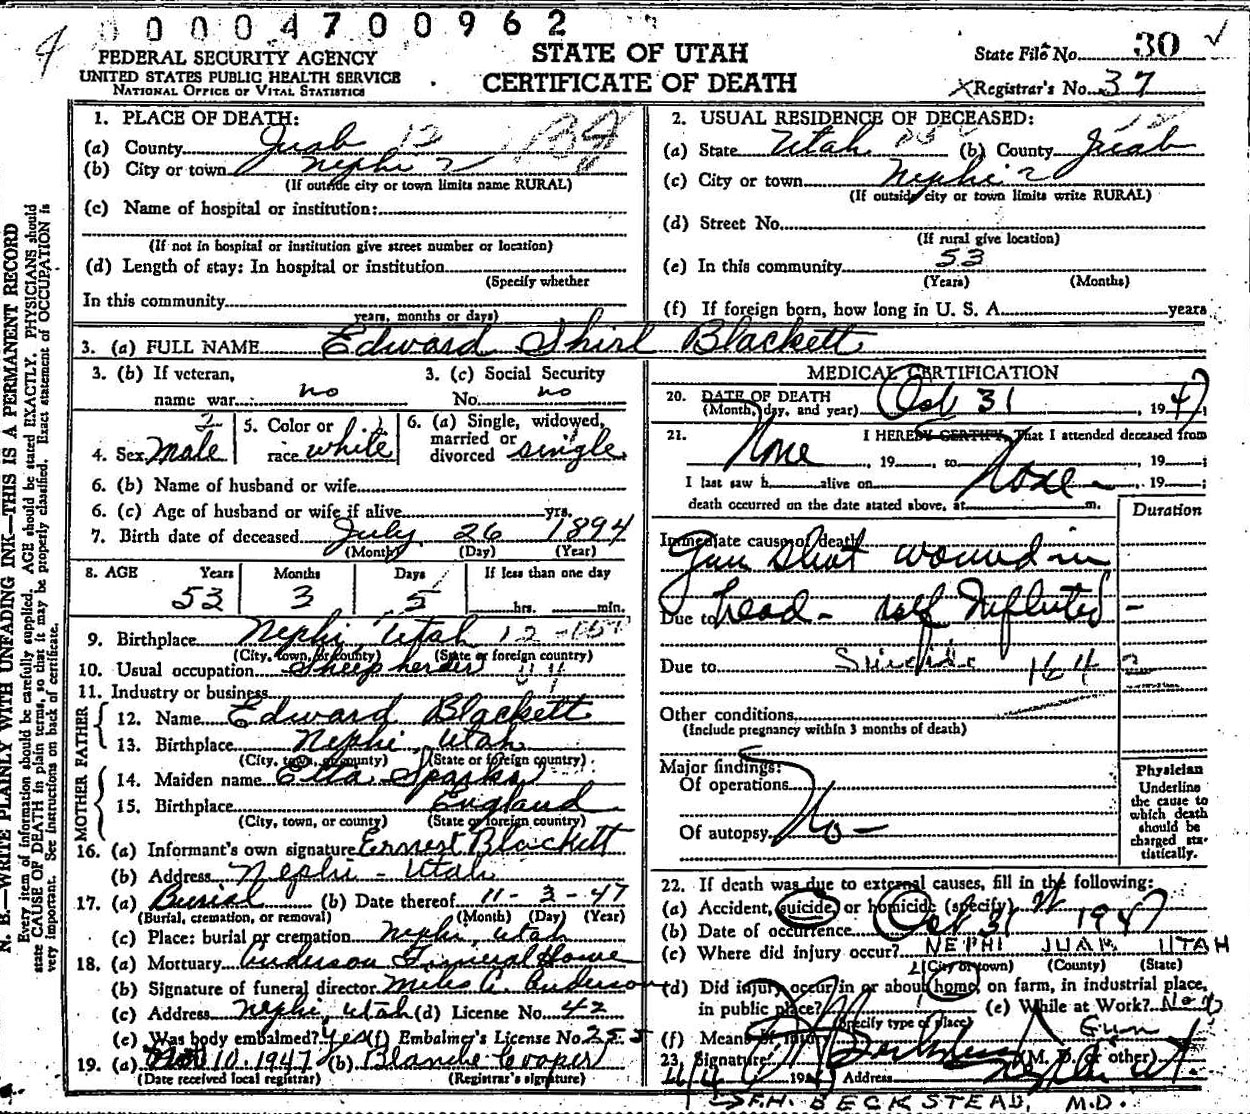 00004700962
FEDERAL SECURITY AGENCY
UNITED STATES PUBLIC HEALTH SERVICE
NATIONAL OFFICE OF VITAL STATISTICS
STATE OF UTAH
CERTIFICATE OF DEATH
State File No. 30
Registrar's No. 37
N. B.—WRITE PLAINLY WITH UNFADING INK—THIS IS A PERMANENT RECORD
Every item of information should be carefully supplied. AGE should be stated EXACTLY. PHYSICIANS should
state CAUSE OF DEATH in plain terms, so that it may be properly classified. Exact statement of OCCUPATION is
very important. See instructions on back of certificate.
1. PLACE OF DEATH:
(a) County Juab 12
(b) City or town Nephi 2
(If outside city or town limits name RURAL)
(c) Name of hospital or institution:
(If not in hospital or institution give street number or location)
(d) Length of stay: In hospital or institution
(Specify whether
In this community
years, months or days)
2. USUAL RESIDENCE OF DECEASED:
(a) State Utah (b) County Juab
(c) City or town Nephi 2
(If outside city or town limits write RURAL)
(d) Street No.
(If rural give location)
(e) In this community 53
(Years) (Months)
(f) If foreign born, how long in U. S. A. years
3. (a) FULL NAME Edward Shirl Blackett
3. (b) If veteran, name war no
3. (c) Social Security No. no
4. Sex male
5. Color or race white
6. (a) Single, widowed, married or divorced single
6. (b) Name of husband or wife
6. (c) Age of husband or wife if alive yrs.
7. Birth date of deceased July 26 1894
(Month) (Day) (Year)
8. AGE Years Months Days If less than one day
53 3 5 hrs. min.
9. Birthplace Nephi Utah
(City, town, or county) (State or foreign country)
10. Usual occupation Sheep herder
11. Industry or business
FATHER
12. Name Edward Blackett
13. Birthplace Nephi, Utah
(City, town, or county) (State or foreign country)
MOTHER
14. Maiden name Etta Sparks
15. Birthplace England
(City, town, or county) (State or foreign country)
16. (a) Informant's own signature Ernest Blackett
(b) Address Nephi - Utah
17. (a) Burial (b) Date thereof 11-3-47
(Burial, cremation, or removal) (Month) (Day) (Year)
(c) Place: burial or cremation Nephi, Utah
18. (a) Mortuary Anderson Funeral Home
(b) Signature of funeral director Miles A. Anderson
(c) Address Nephi, Utah (d) License No. 42
(e) Was body embalmed? Yes (f) Embalmer's License No. 255
19. (a) 10. 1947 (b) Blanche Cooper
(Date received local registrar) (Registrar's signature)
MEDICAL CERTIFICATION
20. DATE OF DEATH Oct 31, 1947;
(Month, day, and year)
21. I HEREBY CERTIFY, That I attended deceased from
None, 19 , to , 19 ;
I last saw h alive on None, 19 ;
death occurred on the date stated above, at m.
Duration
Immediate cause of death
Gun shot wound in
Due to head - self Inflicted -
Due to Suicide 164
Other conditions
(Include pregnancy within 3 months of death)
Major findings:
Of operations
Of autopsy No -
Physician
Underline
the cause to
which death
should be
charged sta-
tistically.
22. If death was due to external causes, fill in the following:
(a) Accident, suicide, or homicide (specify)
(b) Date of occurrence Oct 31 1947
(c) Where did injury occur? NEPHI JUAB UTAH
(City or town) (County) (State)
(d) Did injury occur in or about home, on farm, in industrial place,
in public place? (e) While at Work? No
(Specify type of place)
(f) Means of injury Gun
23. Signature (M. D. or other)
19 Address Nephi Ut.
F.H. BECKSTEAD, M.D.